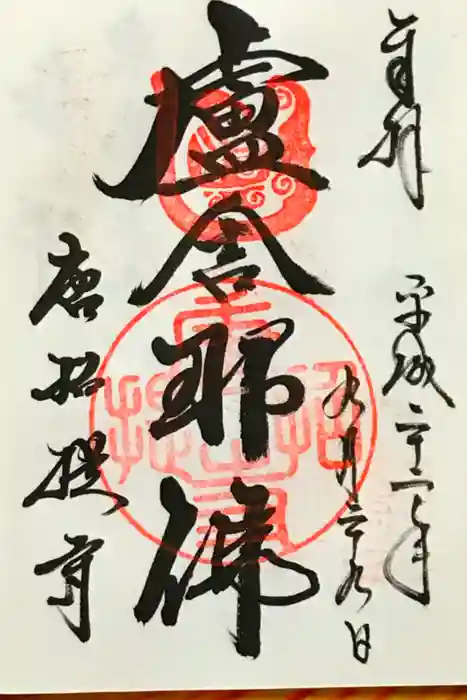 奉拝
平成二十二年
九月二九日
盧舎那佛
唐招提寺